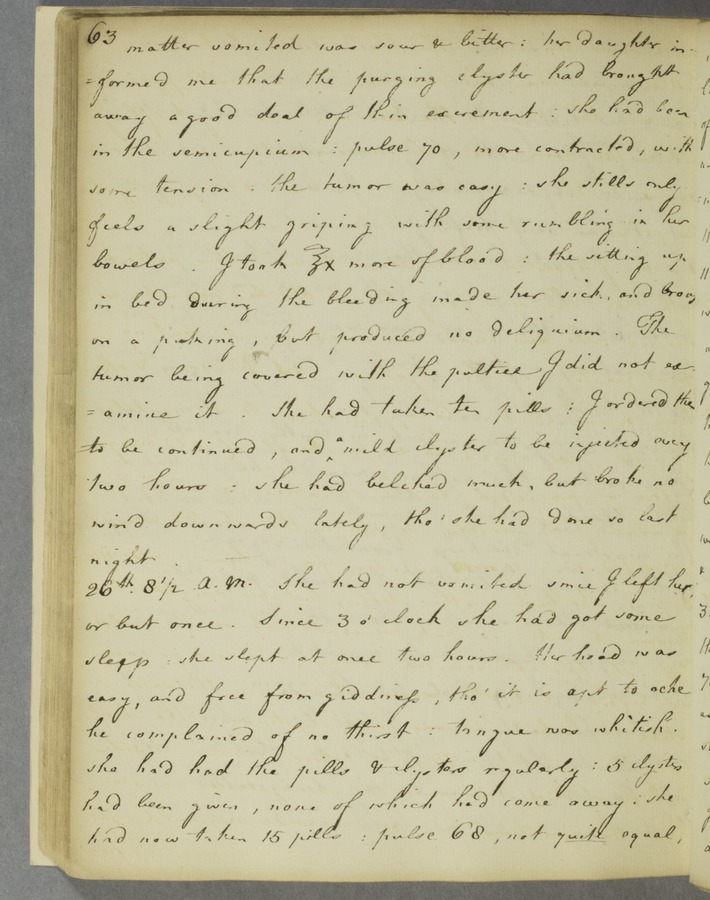 63
matter vomited was sour & bitter : her daughter in-
=formed me that the purging clyster had brought
away a good deal of thin excrement : she had been
in the semicupium : pulse 70 , more contracted, with
some tension : the tumor was easy : she stills only
feels a slight griping with some rumbling in her
bowels . I took ℥x more of blood : the sitting up
in bed during the bleeding made her sick, and
on a puking , but produced no deliquium . The
tumor being covered with the pultice I did not ex-
=amine it . She had taken ten pills : I ordered them
to be continued , and a mild clyster to be injected every
two hours : she had belched much, but broke no
wind downwards lately, tho' she had done so last
night .
26th. 8 1/2 A. M. She had not vomited since I left her,
or but once . Since 3 o'clock she had got some
sleep : she slept at once two hours . Her head was
easy, and free from giddiness , tho' it is apt to ache
he complained of no thirst : tongue was whitish .
she had had the pills & clysters regularly : 5 clysters
had been given , none of which had come away : she
had now taken 15 pills : pulse 68 , not quite equal,